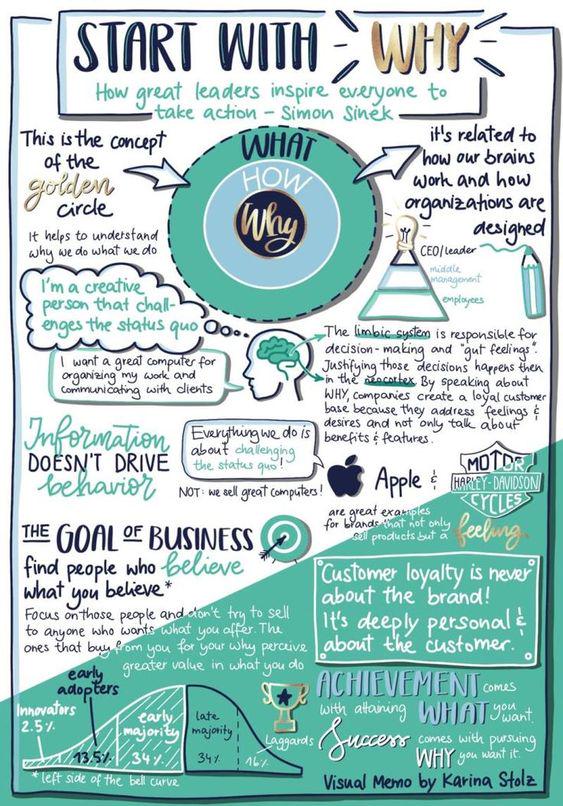 START WITH WHY
How great leaders inspire everyone to
take action - Simon Sinek
This is the concept
of the
golden
circle
It helps to understand
why we do what we do
WHAT
HOW
Why
it's related to
how our brains
work and how
organizations are
designed
CEO/leader
middle
management
employees
I'm a creative
person that chall-
enges the status quo
I want a great computer for
organizing my work and
communicating with clients
The limbic system is responsible for
decision-making and "gut feelings".
Justifying those decisions happens then
in the neocortex. By speaking about
WHY, companies create a loyal customer
base because they address feelings &
desires and not only talk about
benefits & features.
Information
DOESN'T DRIVE
behavior
Everything we do is
about challenging
the status quo!
NOT: we sell great computers!
Apple &
MOTOR
HARLEY-DAVIDSON
CYCLES
are great examples
for brands that not only
sell products but a feeling.
THE GOAL OF BUSINESS
find people who believe
what you believe*
Focus on those people and don't try to sell
to anyone who wants what you offer. The
ones that buy from you for your why perceive
greater value in what you do
Customer loyalty is never
about the brand!
It's deeply personal &
about the customer.
Innovators
2.5%
early
adopters
13.5%
early
majority
34%
late
majority
34%
Laggards
16%
* left side of the bell curve
ACHIEVEMENT comes
with attaining WHAT you
want.
Success comes with pursuing
WHY you want it.
Visual Memo by Karina Stolz